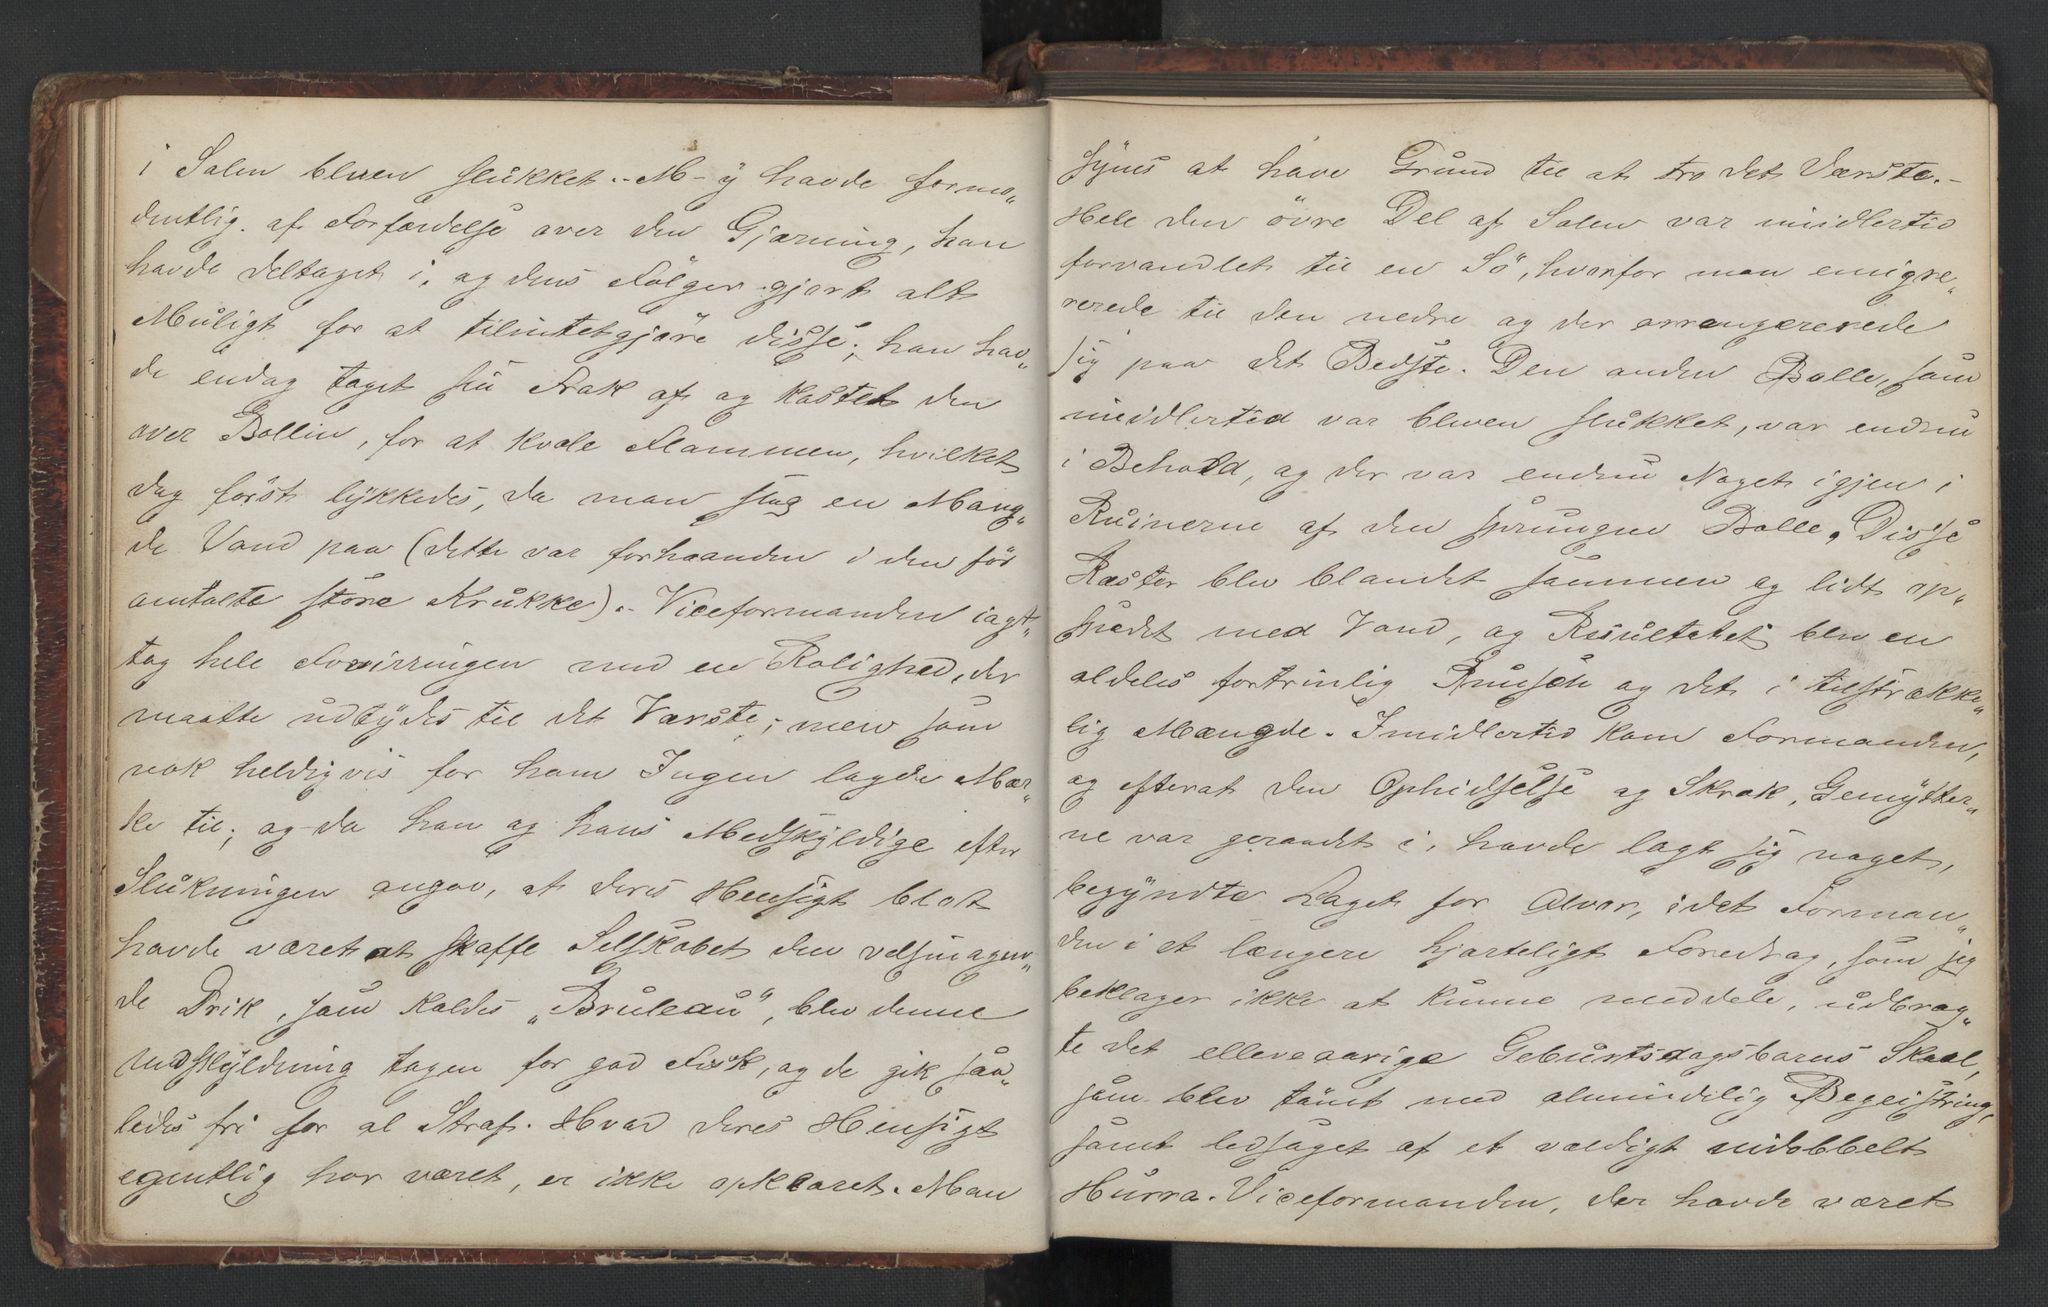 i Salen bleven slukket. - M-y havde forma„
dentlig af Forfærdelse over den Gjærning, han
havde deltaget i, og dens Følger gjort alt
Muligt for at tilintetgjøre disse; han hav„
de endog taget sin Frak af og kastet den
over Bollen, for at kvæle Flammen, hvilket
dog først lykkedes, da man slog en Mæng„
de Vand paa (dette var forhaanden i den før
omtalte store Krukke). - Viceformanden iagt„
tog hele Forvirringen med en Rolighed, der
maatte udtydes til det Værste; men som
nok heldigvis for ham Ingen lagde Mær„
ke til; og da han og hans Medskyldige efter
Slukningen angav, at deres Hensigt blot
havde været at skaffe Selskabet den velsmagen„
de Drik, som kaldes „Bruleau", blev denne
Undskyldning tagen for god Fisk, og de gik saa„
ledes fri for al Straf. Hvad deres Hensigt
egentlig har været, er ikke opklaret. Man
synes at have Grund til at tro det Værste. -
Hele den øvre Del af Salen var imidlertid
forvandlet til en Sø, hvorfor man emigre„
rerede til den nedre og der arrangererede
sig paa det Bedste. Den anden Bolle, som
imidlertid var bleven slukket, var endnu
i Behold, og der var endnu Noget igjen i
Ruinerne af den sprungne Bolle. Disse
Rester blev blandet sammen og lidt op„
spædet med Vand, og Resultatet blev en
aldeles fortrinlig Punsch og det i tilstrække„
lig Mængde. Imidlertid kom Formanden,
og efterat den Ophidselse og Skræk, Gemytter„
ne var geraadet i, havde lagt sig noget,
begyndte Laget for Alvor, idet Forman„
den i et længere hjerteligt Foredrag, som jeg
beklager ikke at kunne meddele, udbrag„
te det elleveaarige Geburtsdagsbarns Skaal,
som blev tømt med almindelig Begeistring,
samt ledsaget af et vældigt nidobbelt
Hurra. Viceformanden, der havde været